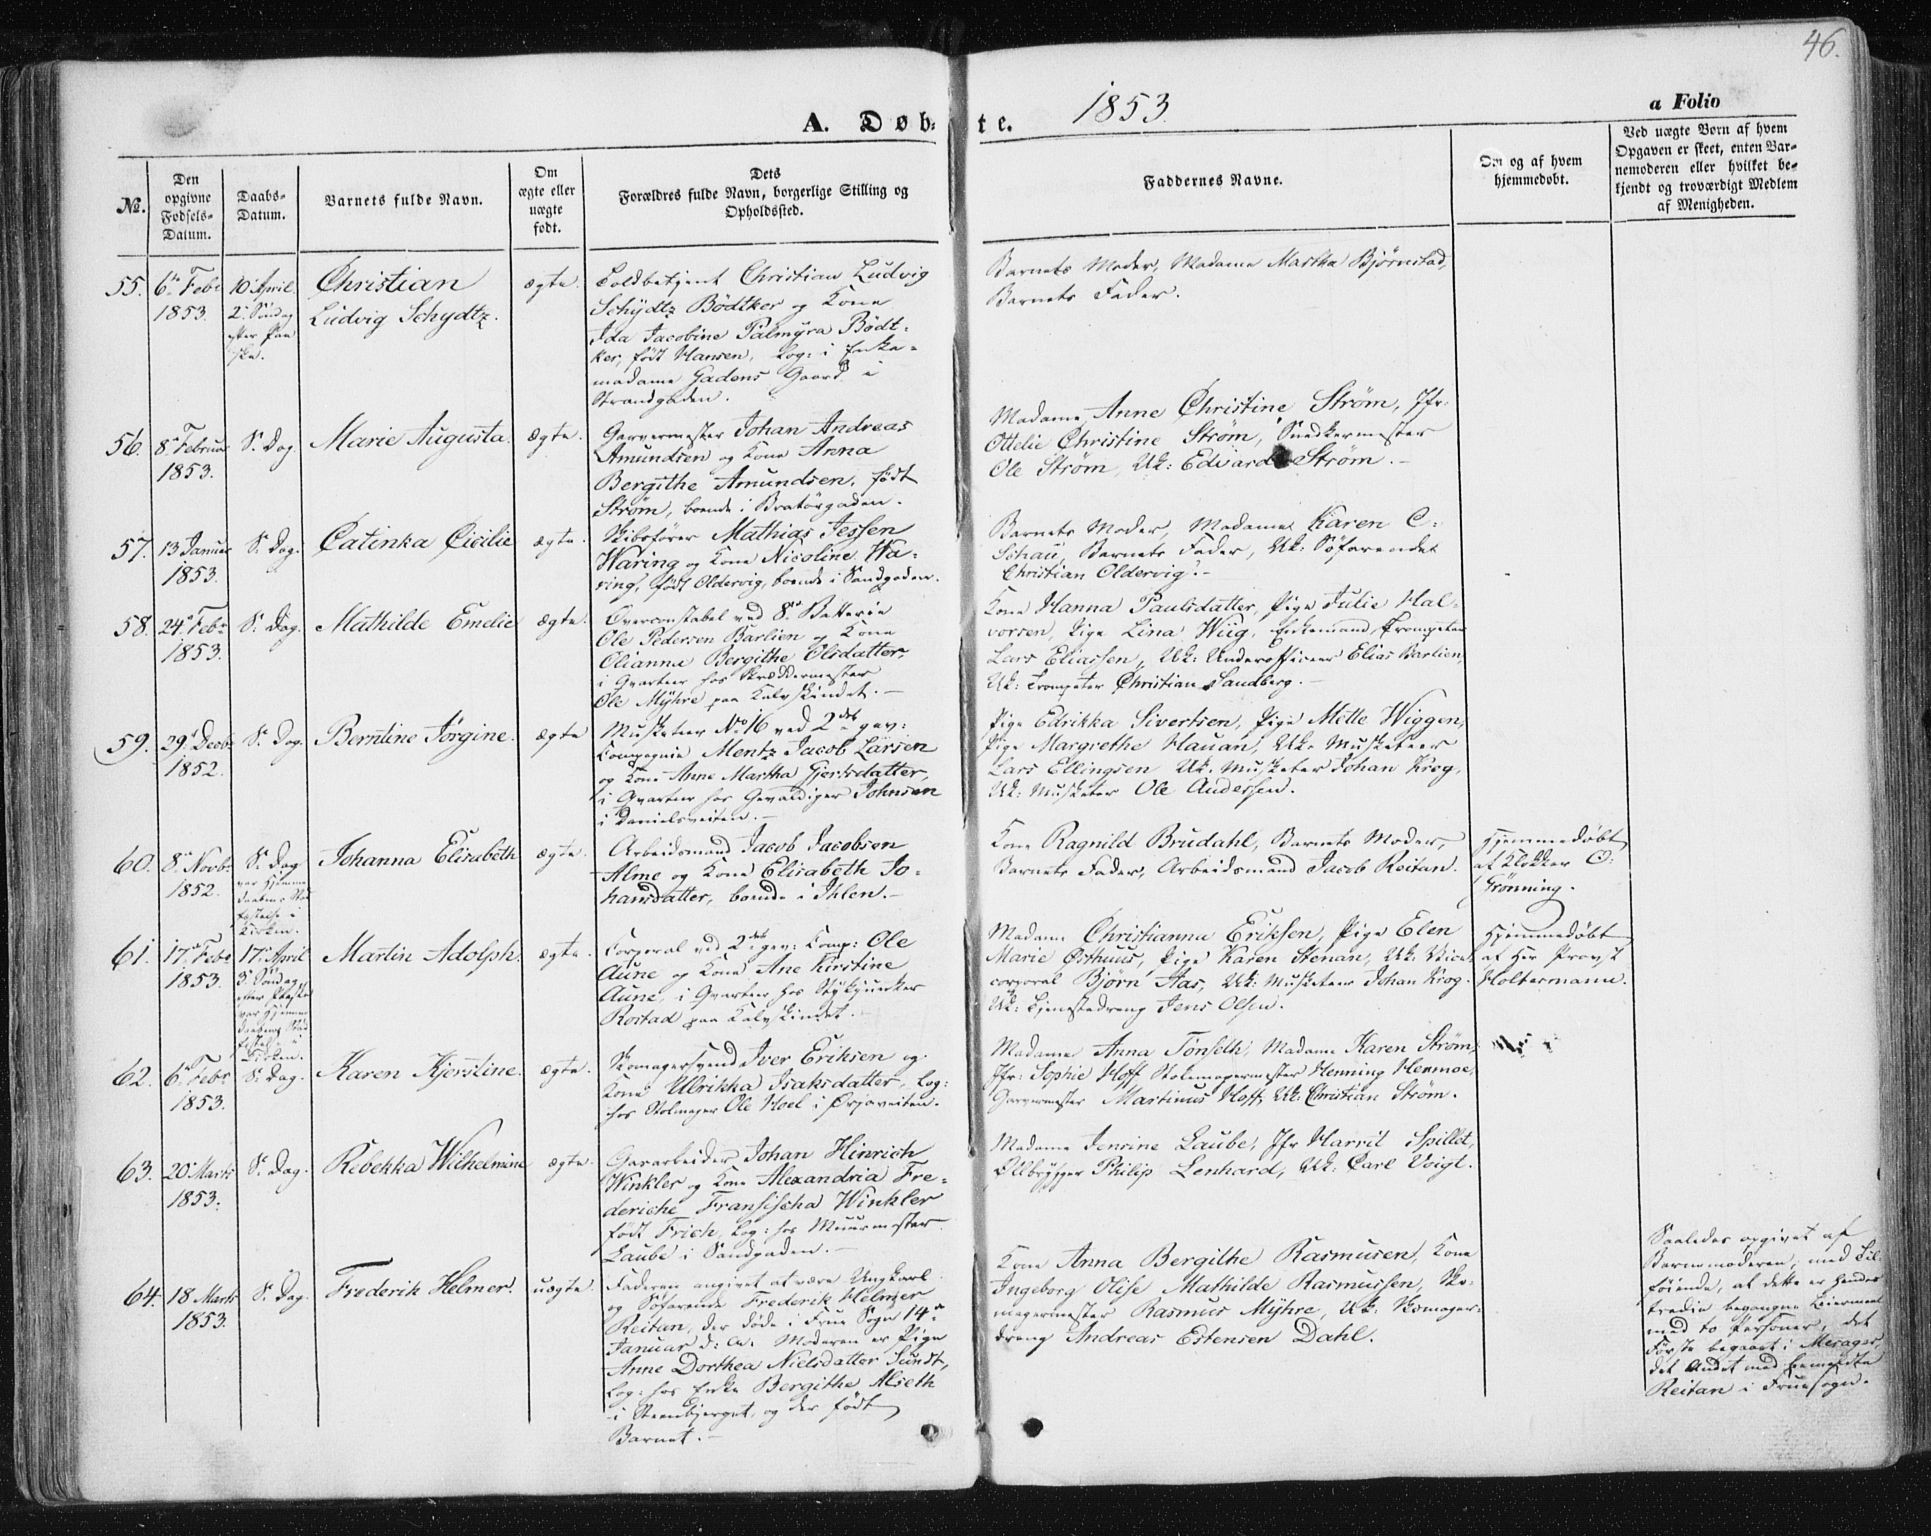 46.
A. Døbte. 1853. a Folio
№.
Den opgivne Fødsels-Datum.
Daabs-Datum.
Barnets fulde Navn.
Om ægte eller uægte født.
Dets Forældres fulde Navn, borgerlige Stilling og Opholdssted.
Faddernes Navne.
Om og af hvem hjemmedøbt.
Ved uægte Børn af hvem Opgaven er skeet, enten Barnemoderen eller hvilket bekjendt og troværdigt Medlem af Menigheden.
55. 6te Feb: 1853. 10 April 2. Søndag efter Paaske.
Christian
Ludvig Schydtz.
ægte.
Toldbetjent Christian Ludvig
Schydtz Bödtker og Kone
Ida Jacobine Palmyra Bödt-
ker, født Hansen, Log: i Enke-
madame Gadens Gaard i
Strandgaden.
Barnets Moder, Madame Martha Bjørnstad,
Barnets Fader.
56. 8de Februar 1853. S. Dag.
Marie Augusta.
ægte.
Garvermester Johan Andreas
Amundsen og Kone Anna
Bergithe Amundsen, født
Strøm, boende i Bratørgaden.
Madame Anne Christine Strøm, Jfr.
Ottelie Christine Strøm, Snedkermester
Ole Strøm, Uk: Edvard Strøm.
57. 13 Januar 1853. S. Dag.
Catinka Cicilie
ægte.
Skibsfører Mathias Jessen
Waring og Kone Nicoline Wa-
ring, født Oldervig, boende i Sandgaden.
Barnets Moder, Madame Karen C:
Schau, Barnets Fader, Uk: Søfarende
Christian Oldervig.
58. 24de Feb: 1853. S. Dag.
Mathilde Emelie
ægte.
Overconstabel ved 8de Batterie
Ole Pedersen Barlien og Kone
Olianna Bergithe Olsdatter,
i Qvarteer hos Skreddermester
Ole Myhre paa Kalvskindet.
Kone Hanna Paulsdatter, Pige Julie Hal-
vorsen, Pige Lina Wiig, Enkemand, Trompeter
Lars Eliassen, Uk: Underofficeer Elias Barlien,
Uk: Trompeter Christian Sandberg.
59. 29 Decb: 1852. S. Dag.
Berntine Jørgine.
ægte
Musketeer No 16 ved 2det gev:
Compagnie Mentz Jacob Larsen
og Kone Anne Martha Gjertsdatter,
i Qvarteer hos Gevaldiger Johnsen
i Danielsveiten.
Pige Edrikka Sivertsen, Pige Mette Wiggen,
Pige Margrethe Hauan, Uk: Musketeer
Lars Ellingsen, Uk: Musketeer Johan Krog,
Uk: Musketeer Ole Andersen.
60. 8de Novb: 1852. S. Dag var Hjemmedaabens Stadfæstelse i Kirken.
Johanna Elisabeth
ægte.
Arbeidsmand Jacob Jacobsen
Alme og Kone Elisabeth Jo-
hansdatter, boende i Ihlen.
Kone Ragnild Brudahl, Barnets Moder,
Barnets Fader, Arbeidsmand Jacob Reitan.
Hjemmedøbt
af Klokker O:
Grønning.
61. 17de Feb: 1853. 17de April 3. Søndag efter Paaske var Hjemmedaabens Stadfæstelse i Kirken.
Martin Adolph.
ægte.
Corporal ved 2det gev: Comp: Ole
Aune og Kone Ane Kirstine
Aune, i Qvarteer hos Stykjunker
Rostad paa Kalvskindet.
Madam Christianna Eriksen, Pige Elen
Marie Østhuus, Pige Karen Stenan, Uk: Vice
corporal Bjørn Aas, Uk: Musketeer Johan Krog,
Uk: Tjenestedreng Jens Olsen.
Hjemmedøbt
af Her Provst
Holtermann.
62. 6te Feb: 1853. S. Dag.
Karen Kjerstine.
ægte.
Skomagersvend Iver Eriksen og
Kone Ulrikka Isaksdatter, Log:
hos Stolmager Ole Hoel i Ørjaveiten.
Madame Anna Tønseth, Madame Karen Strøm,
Jfr: Sophie Hoff, Stolemagermester Henning Henmoe,
Garvermester Martinus Hoff, Uk: Christian Strøm.
63. 20 Marts 1853. S. Dag.
Rebekka Wilhelmine
ægte.
Gasarbeider Johan Hinrich
Winkler og Kone Alexandria Fre-
deriche Fransischa Winkler
født Frich, Log: hos Muurmester
Laube i Sandgaden.
Madame Jensine Laube, Jfr Harril Spillet,
Ølbrygger Philip Lenhard, Uk: Carl Voigt.
64. 18 Marts 1853. S. Dag.
Frederik Helmer.
uægte.
Faderen angivet at være Ungkarl
og Søfarende Frederik Helmer
Reitan, der døde i Frue Sogn 14de
Januar d: A. Moderen er Pige
Anne Dorthea Nielsdatter Sundt,
Log: hos Enke Bergithe Alseth
i Steenbjerget, og der født
Barnet.
Kone Anna Bergithe Rasmusen, Kone
Ingeborg Olise Mathilde Rasmussen, Sko-
magermester Rasmus Myhre, Uk: Skomager-
dreng Andreas Estensen Dahl.
Saaledes opgivet af
Barnemoderen, med Til-
føiende, at dette er hendes
tredie begangne Leiermaal
med to Personer, det
Første begaaet i Merager,
det Andet med bemeldte
Reitan i Fruesogn.